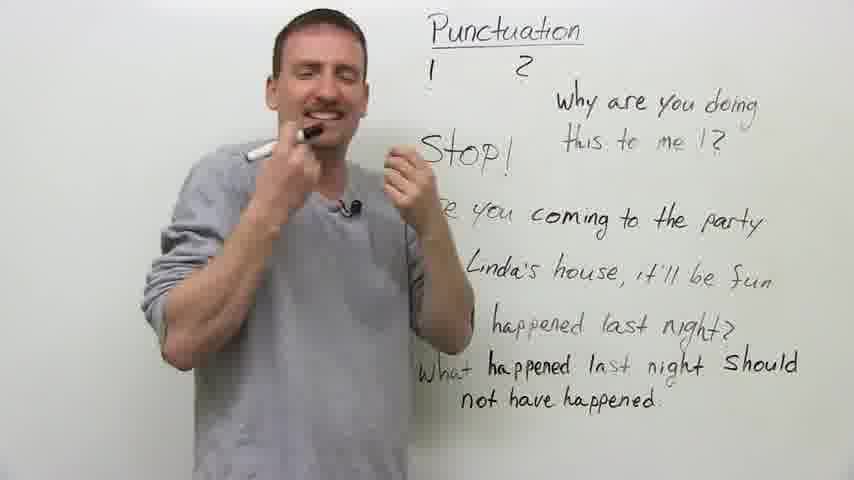 Punctuation
1 2
Why are you doing
this to me !?
Stop!
you coming to the party
Linda's house, it'll be fun
happened last night?
What happened last night should
not have happened.